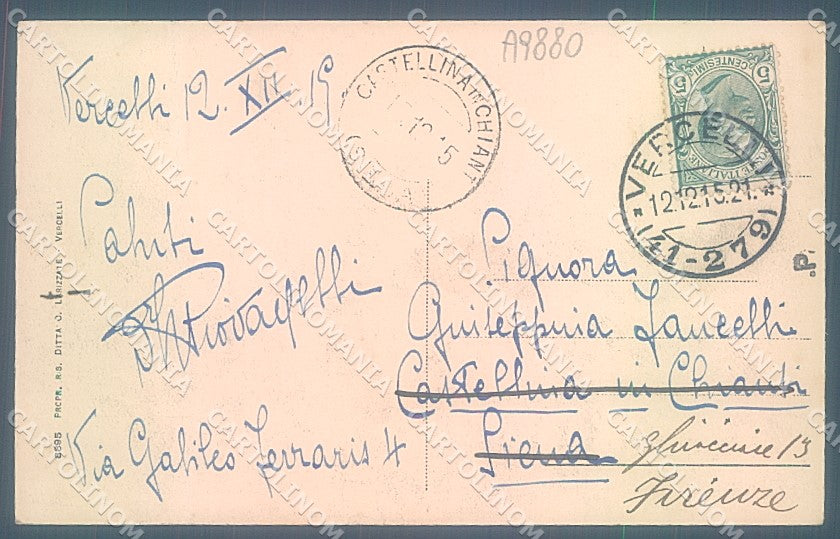 A9880
Vercelli 12. XII 15
Saluti
Via Galileo Ferraris 4
8595 PROPR. RIS. DITTA VERCELLI
CASTELLINA IN CHIANTI
(SIENA)
5 CENTESIMI 5
VERCELLI
12.12.15.21
(41-279)
Signora
Giuseppina
Castellina in Chianti
Siena
13
Firenze
.P.
CARTOLINOMANIA